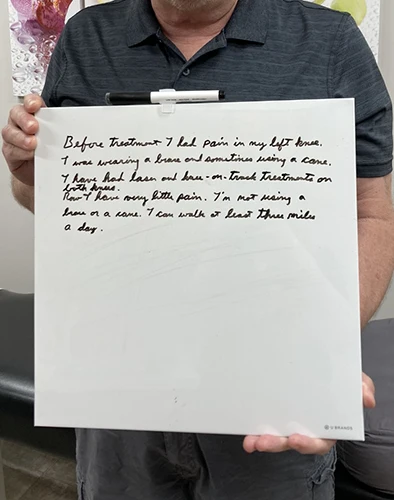 Before treatment I had pain in my left knee.
I was wearing a brace and sometimes using a cane.
I have had laser and knee-on-track treatments on
both knees.
Now I have very little pain. I'm not using a
brace or a cane. I can walk at least three miles
a day.
U BRANDS